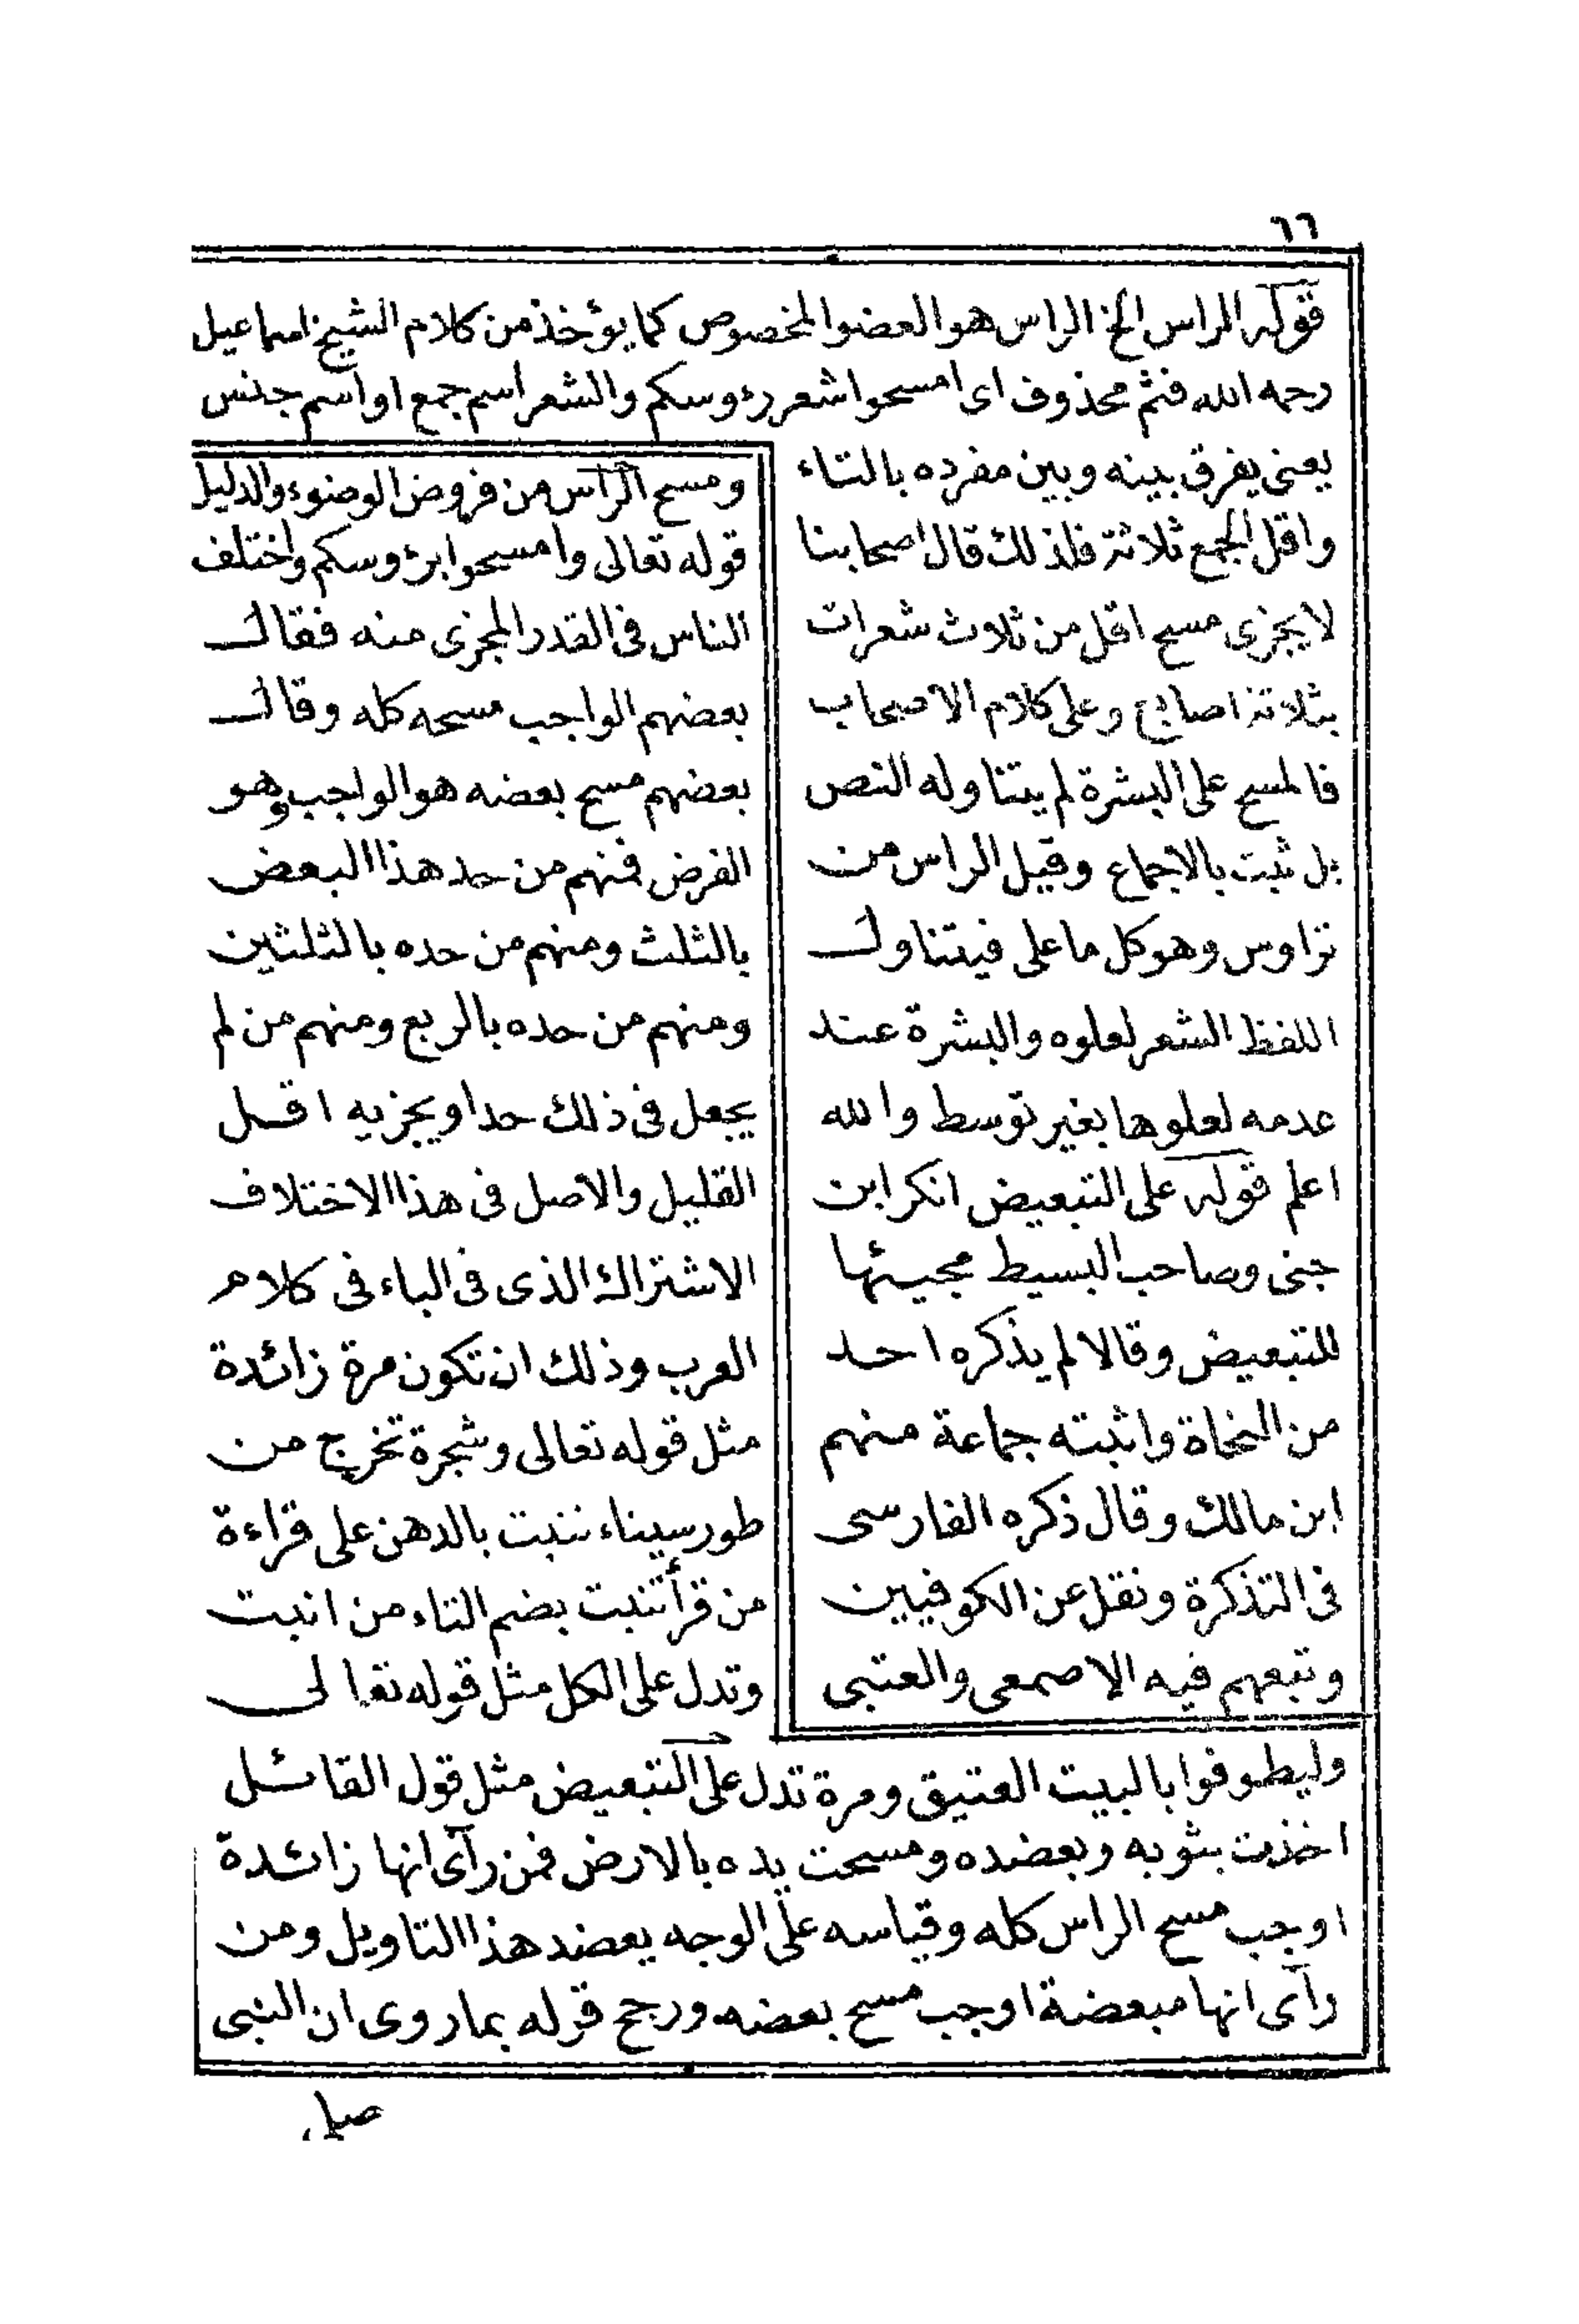 ٦٦
قوله الراس الخ الراس هو العضو المخصوص كما يؤخذ من كلام الشيخ اسماعيل
رحمه الله فثم محذوف اى امسحوا شعر رءوسكم والشعر اسم جمع او اسم جنس
يعنى يفرق بينه وبين مفرده بالتاء
واقل الجمع ثلاثة فلذلك قال اصحابنا
لا يجزى مسح اقل من ثلاث شعرات
بثلاثة اصابع وعلى كلام الاصحاب
فالمسح على البشرة لم يتناوله النص
بل ثبت بالاجماع وقيل الراس من
تراوس وهو كل ما على فيتناول
اللفظ الشعر لعلوه والبشرة عند
عدمه لعلوها بغير توسط والله
اعلم قوله على التبعيض انكر ابن
جنى وصاحب البسيط مجيئها
للتبعيض وقالا لم يذكره احد
من النحاة واثبته جماعة منهم
ابن مالك وقال ذكره الفارسى
فى التذكرة ونقل عن الكوفيين
وتبعهم فيه الاصمعى والعتبى
ومسح الرأس من فروض الوضوء والدليل
قوله تعالى وامسحوا برؤوسكم واختلف
الناس فى القدر المجزى منه فقال
بعضهم الواجب مسحه كله وقال
بعضهم مسح بعضه هو الواجب وهو
الفرض فمنهم من حد هذا البعض
بالثلث ومنهم من حده بالثلثين
ومنهم من حده بالربع ومنهم من لم
يجعل فى ذلك حدا ويجزيه اقل
القليل والاصل فى هذا الاختلاف
الاشتراك الذى فى الباء فى كلام
العرب وذلك ان تكون مرة زائدة
مثل قوله تعالى وشجرة تخرج من
طور سيناء تنبت بالدهن على قراءة
من قرأ تنبت بضم التاء من انبت
وتدل على الكل مثل قوله تعالى
وليطوفوا بالبيت العتيق ومرة تدل على التبعيض مثل قول القائل
اخذت بثوبه وبعضده ومسحت يده بالارض فمن رآى انها زائدة
اوجب مسح الراس كله وقياسه على الوجه يعضد هذا التاويل ومن
رآى انها مبعضة اوجب مسح بعضه ورجح قوله بما روى ان النبى
صلى